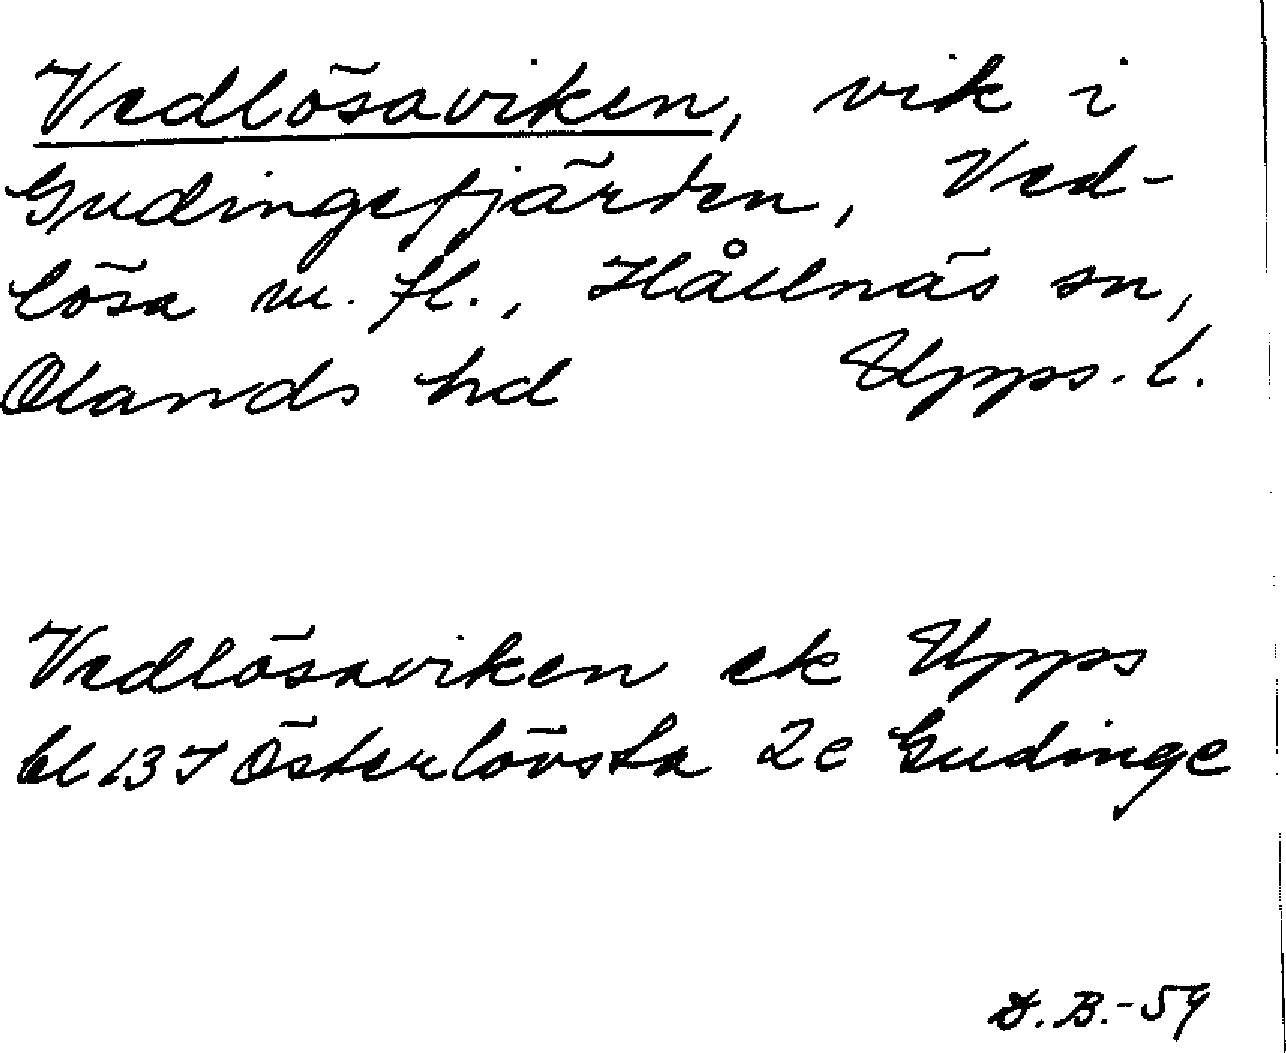 Vedlösaviken, vik i
Gudingefjärden, Ved-
lösa m. fl., Hållnäs sn,
Olands hd Upps. l.
Vedlösaviken ek Upps
bl 137 Österlövsta 2e Gudinge
D.B.-59